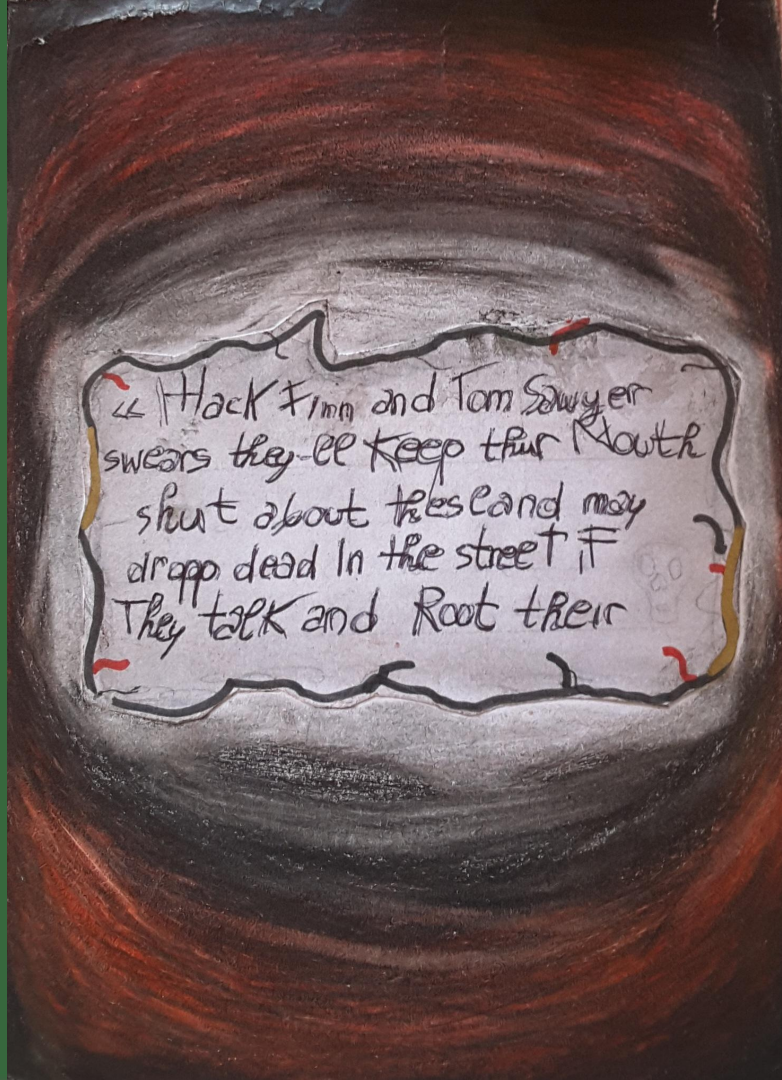 « Hack Finn and Tom Sawyer
swears they-ll Keep thur Mouth
shut about and may
dropp dead In the street iF
They talk and Root their